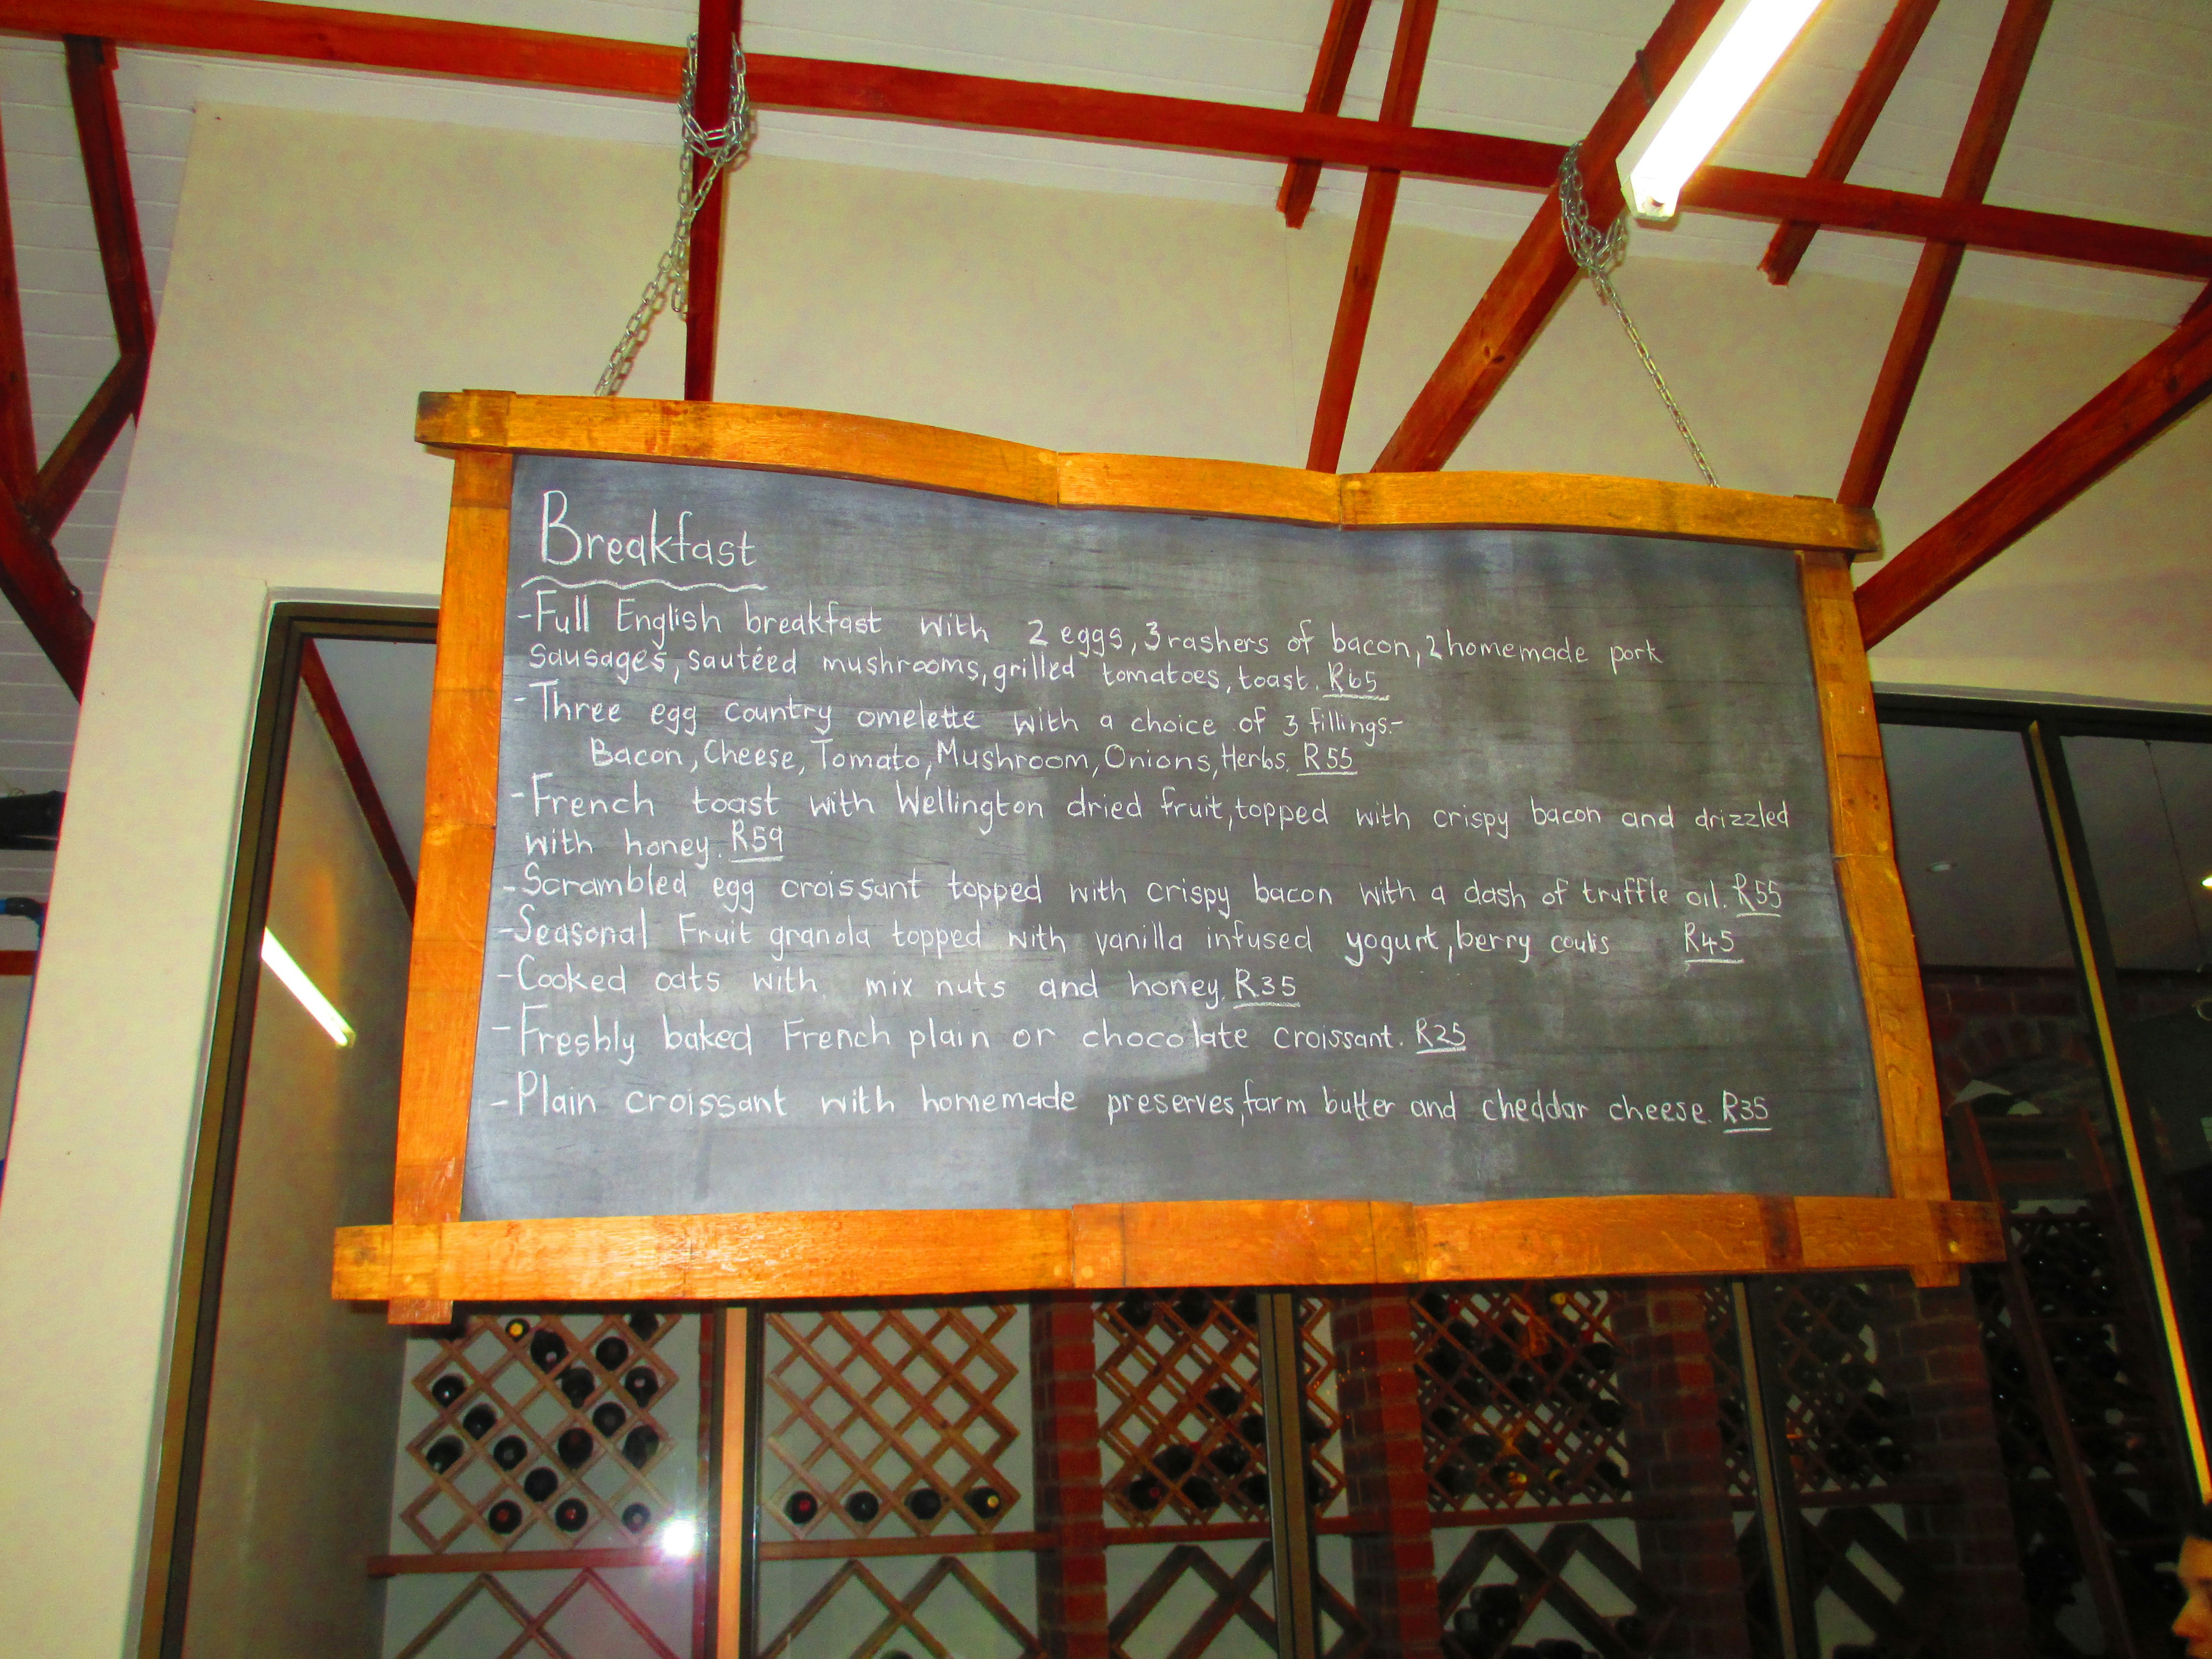 Breakfast
-Full English breakfast with 2 eggs, 3 rashers of bacon, 2 homemade pork
sausages, sautéed mushrooms, grilled tomatoes, toast. R65
-Three egg country omelette with a choice of 3 fillings:-
Bacon, Cheese, Tomato, Mushroom, Onions, Herbs. R55
-French toast with Wellington dried fruit, topped with crispy bacon and drizzled
with honey. R59
-Scrambled egg croissant topped with crispy bacon with a dash of truffle oil. R55
-Seasonal Fruit granola topped with vanilla infused yogurt, berry coulis R45
-Cooked oats with mix nuts and honey. R35
-Freshly baked French plain or chocolate croissant. R25
-Plain croissant with homemade preserves, farm butter and cheddar cheese. R35